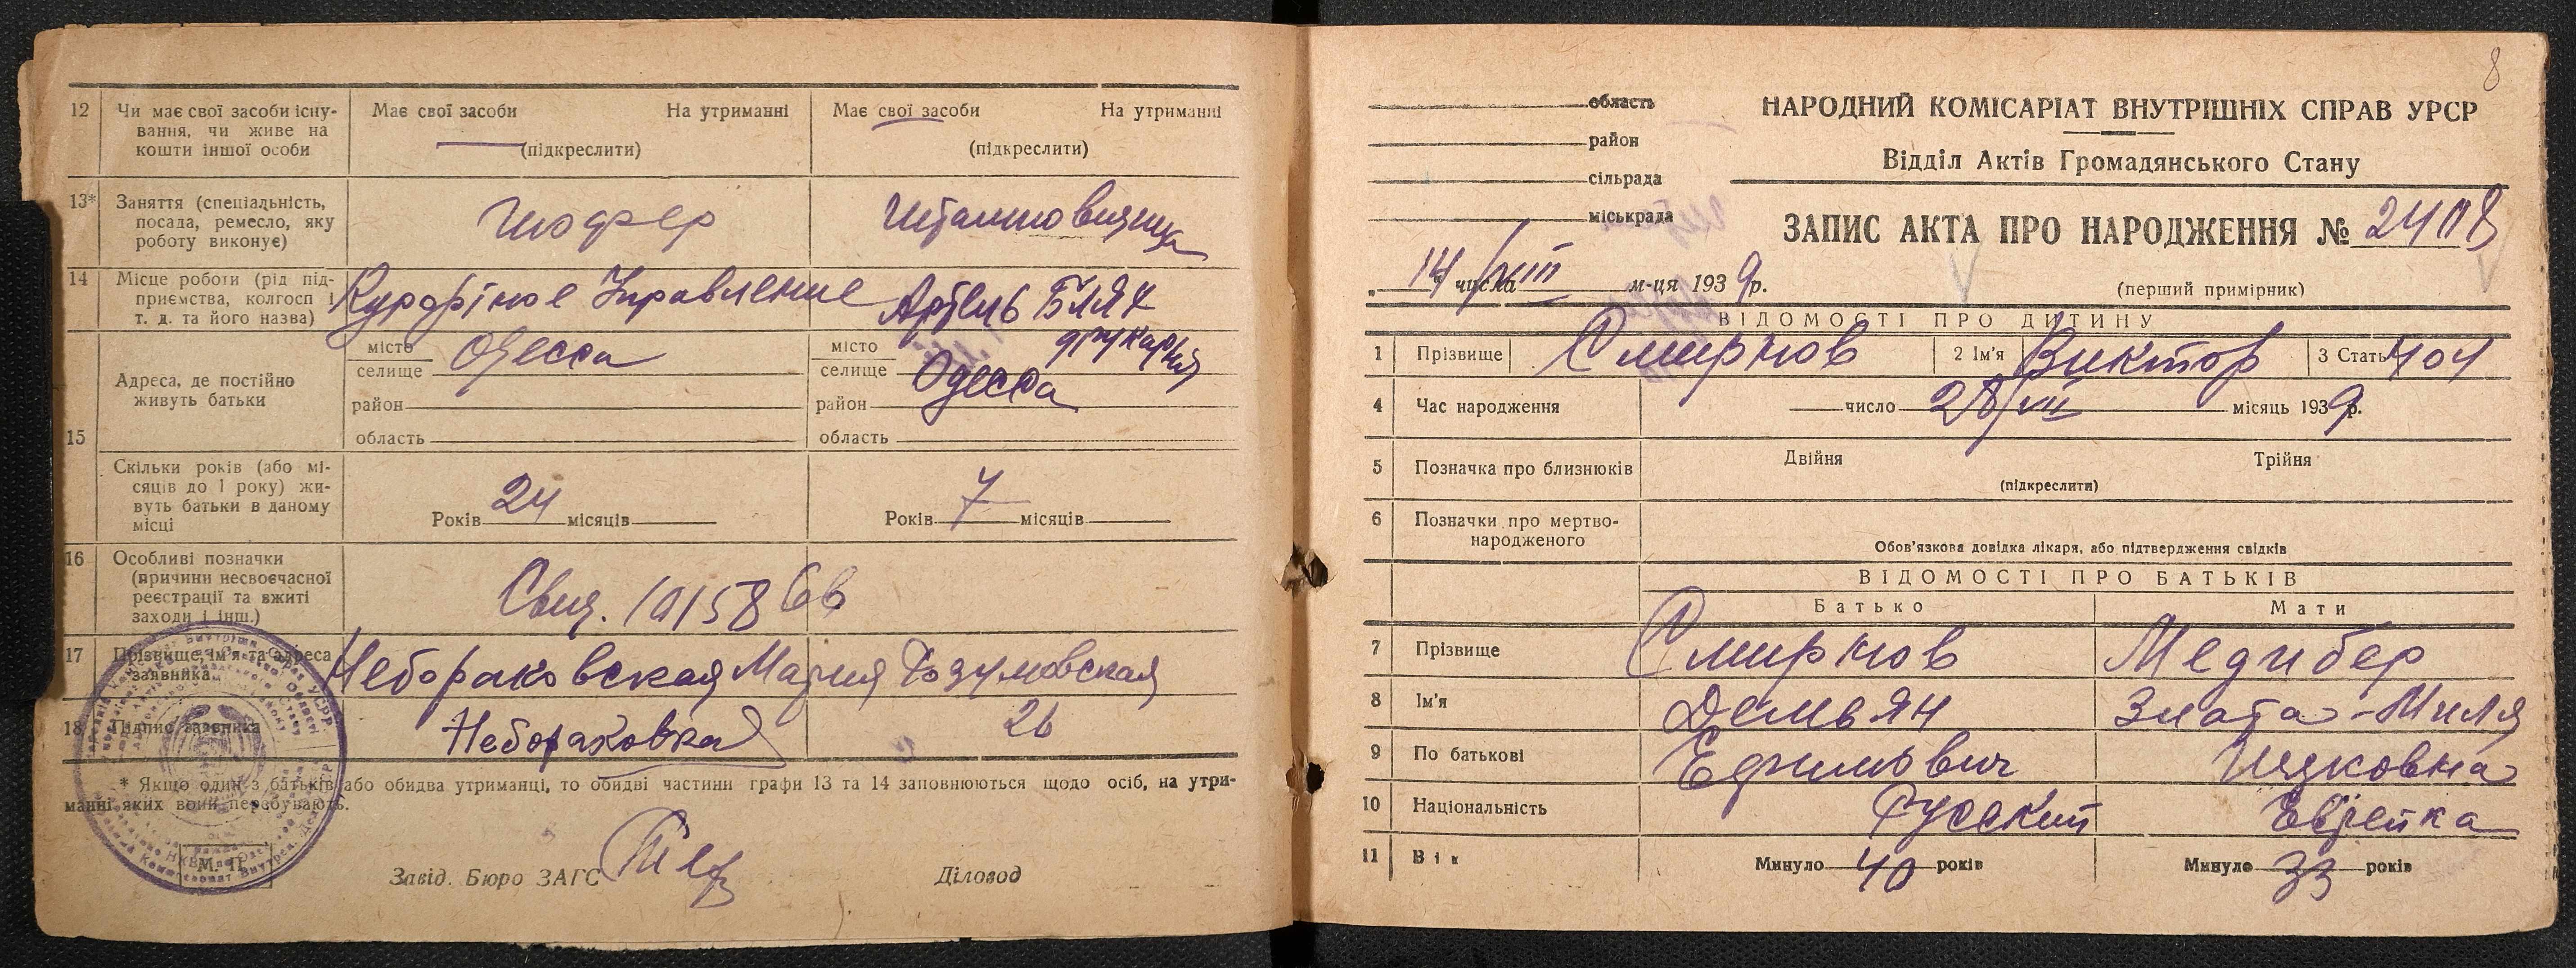 12 Чи має свої засоби існу-
вання, чи живе на
кошти іншої особи
Має свої засоби На утриманні
(підкреслити)
Має свої засоби На утриманні
(підкреслити)
13* Заняття (спеціальність,
посада, ремесло, яку
роботу виконує)
Шофер
14 Місце роботи (рід під-
приємства, колгосп і
т. д. та його назва)
Курортное Управление
Артель
друкарня
15 Адреса, де постійно
живуть батьки
місто
селище Одесса
район
область
місто
селище Одесса
район
область
Скільки років (або мі-
сяців до 1 року) жи-
вуть батьки в даному
місці
Років 24 місяців
Років 7 місяців
16 Особливі позначки
(причини несвоєчасної
реєстрації та вжиті
заходи і інш.)
17 Прізвище, ім'я та адреса
заявника
Небораковская Мария Розумовская
26
18 Підпис заявника
Небораковская
* Якщо один з батьків або обидва утриманці, то обидві частини графи 13 та 14 заповнюються щодо осіб, на утри-
манні яких вони перебувають.
М. П.
Завід. Бюро ЗАГС
Діловод
8
область
район
сільрада
міськрада
НАРОДНИЙ КОМІСАРІАТ ВНУТРІШНІХ СПРАВ УРСР
Відділ Актів Громадянського Стану
ЗАПИС АКТА ПРО НАРОДЖЕННЯ №
14 числа VIII м-ця 1939 р.
(перший примірник)
ВІДОМОСТІ ПРО ДИТИНУ
1 Прізвище Смирнов 2 Ім'я Виктор 3 Стать чол
4 Час народження число 28/VII місяць 1939 р.
5 Позначка про близнюків Двійня Трійня
(підкреслити)
6 Позначки про мертво-
народженого
Обов'язкова довідка лікаря, або підтвердження свідків
ВІДОМОСТІ ПРО БАТЬКІВ
Батько Мати
7 Прізвище Смирнов Медибер
8 Ім'я Демьян Злата-Миля
9 По батькові Ефимович Ицковна
10 Національність Русский Еврейка
11 Вік Минуло 40 років Минуло 33 років